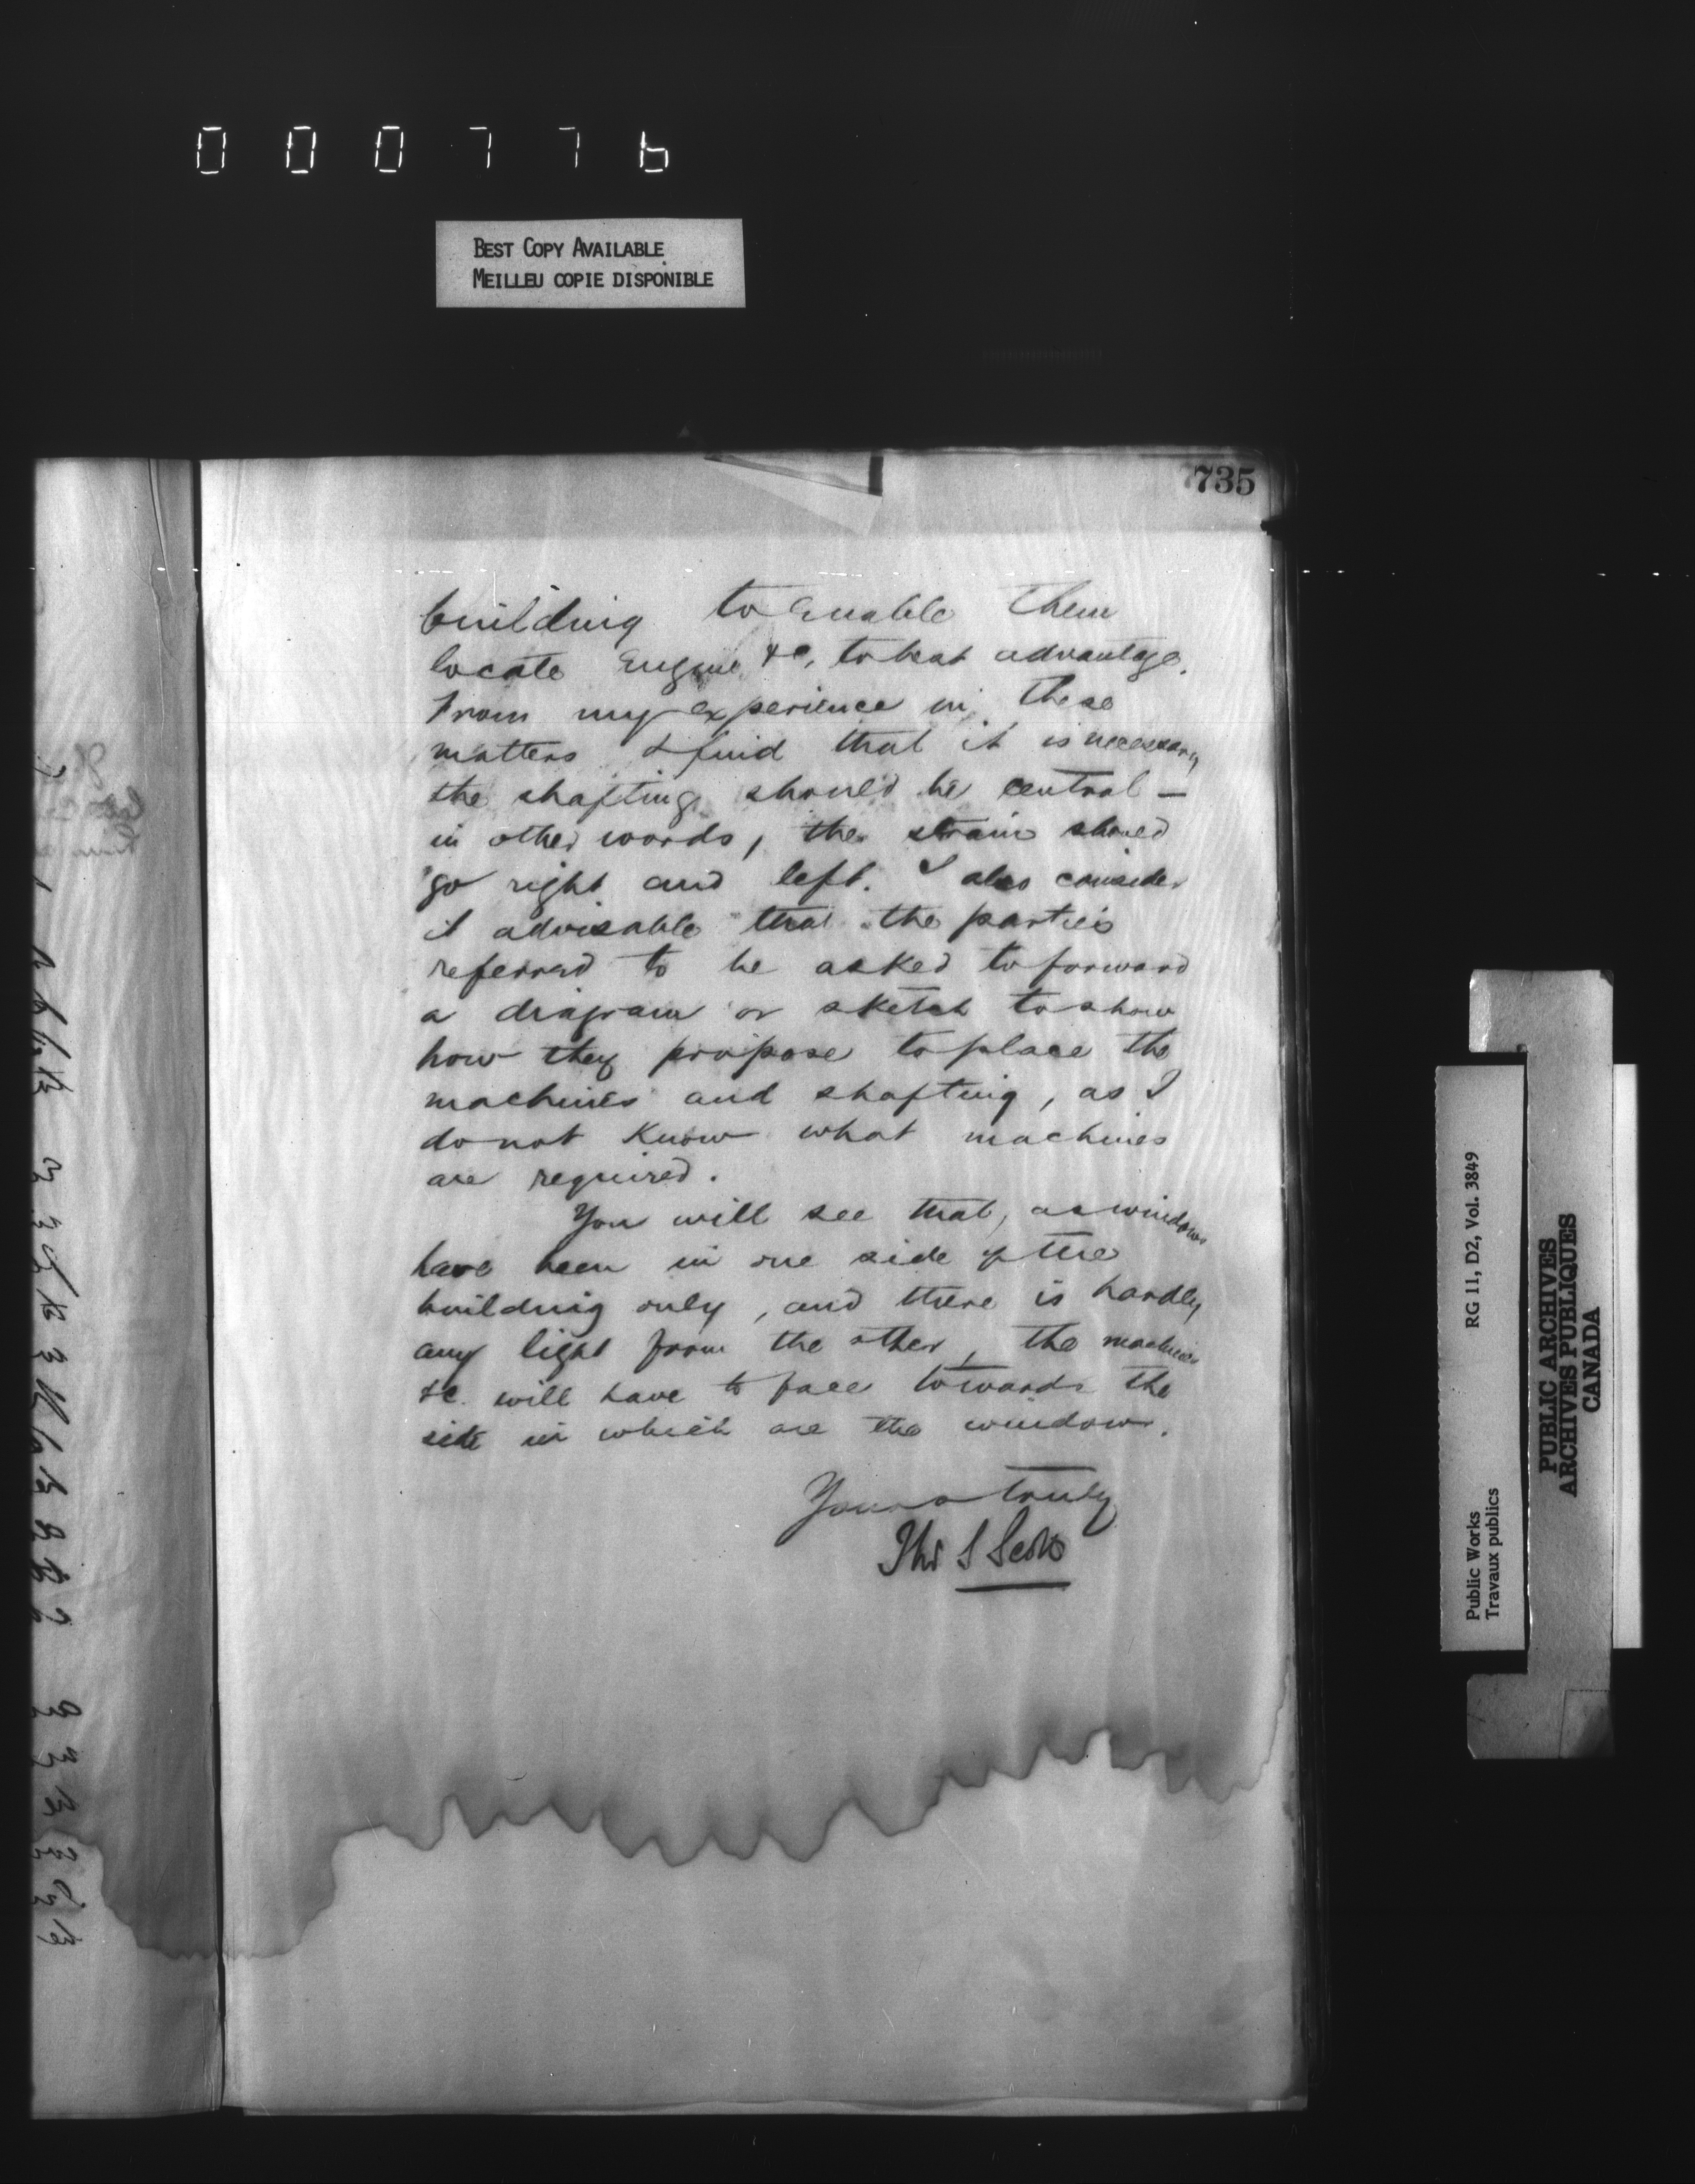 000776
BEST COPY AVAILABLE
MEILLEU COPIE DISPONIBLE
735
building to enable them
locate Engine &c, to best advantage.
From my experience in these
matters I find that it is necessary
the shafting should be central —
in other words, the strain should
go right and left. I also consider
it advisable that the parties
referred to be asked to forward
a diagram or sketch to show
how they propose to place the
machines and shafting, as I
do not know what machines
are required.
You will see that, as windows
have been in one side of the
building only, and there is hardly
any light from the other, the machines
&c. will have to face towards the
side in which are the windows.
Yours truly
Thos S Scott
Public Works
Travaux publics
RG 11, D2, Vol. 3849
PUBLIC ARCHIVES
ARCHIVES PUBLIQUES
CANADA